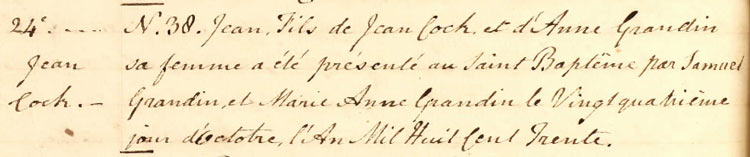 24e. - - - - N. 38. Jean, Fils de Jean Cock, et d'Anne Grandin
Jean sa femme a été présenté au Saint Baptême par Samuel
Cock. - Grandin, et Marie Anne Grandin le Vingt quatrième
jour d'octobre, l'An Mil Huit Cent Trente.